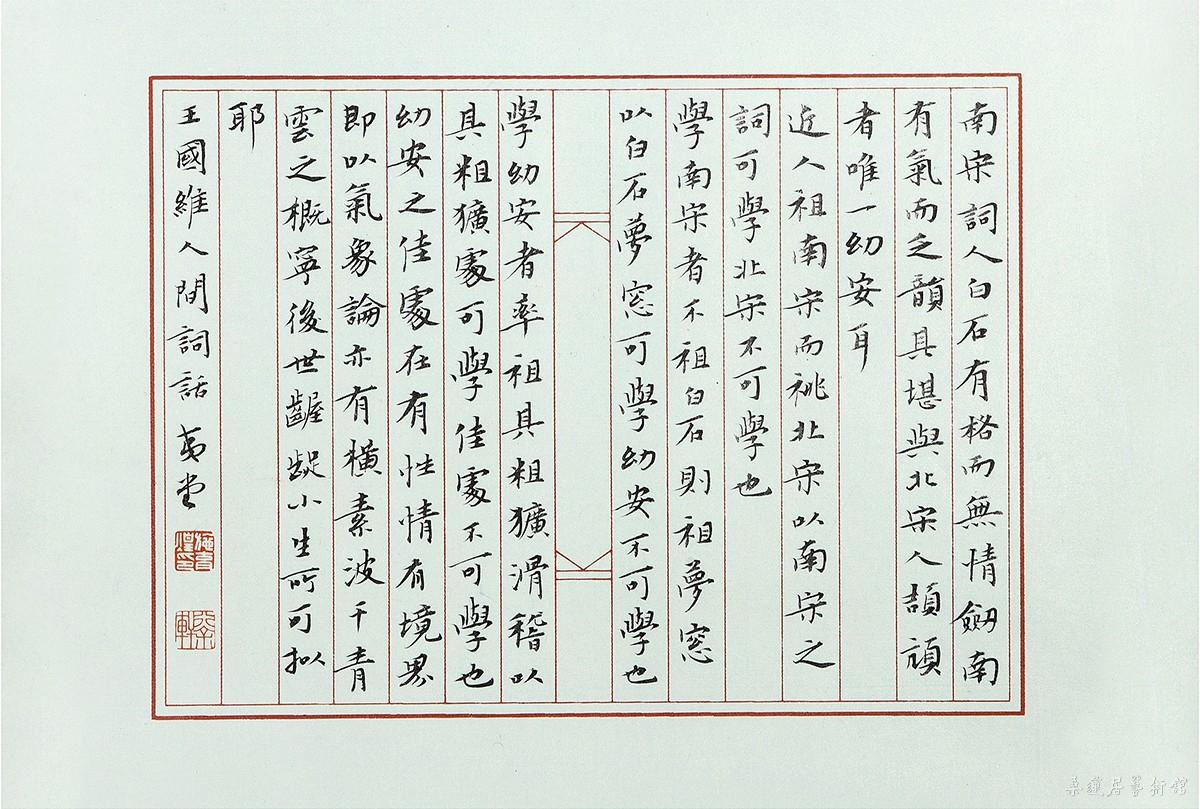 南宋詞人白石有格而無情劒南
有氣而乏韻其堪與北宋人頡頏
者唯一幼安耳
近人祖南宋而祧北宋以南宋之
詞可學北宋不可學也
學南宋者不祖白石則祖夢窓
以白石夢窓可學幼安不可學也
學幼安者率祖其粗獷滑稽以
其粗獷處可學佳處不可學也
幼安之佳處在有性情有境界
即以氣象論亦有橫素波干青
雲之概寧後世齷齪小生所可拟
耶
王國維人間詞話 夷堂